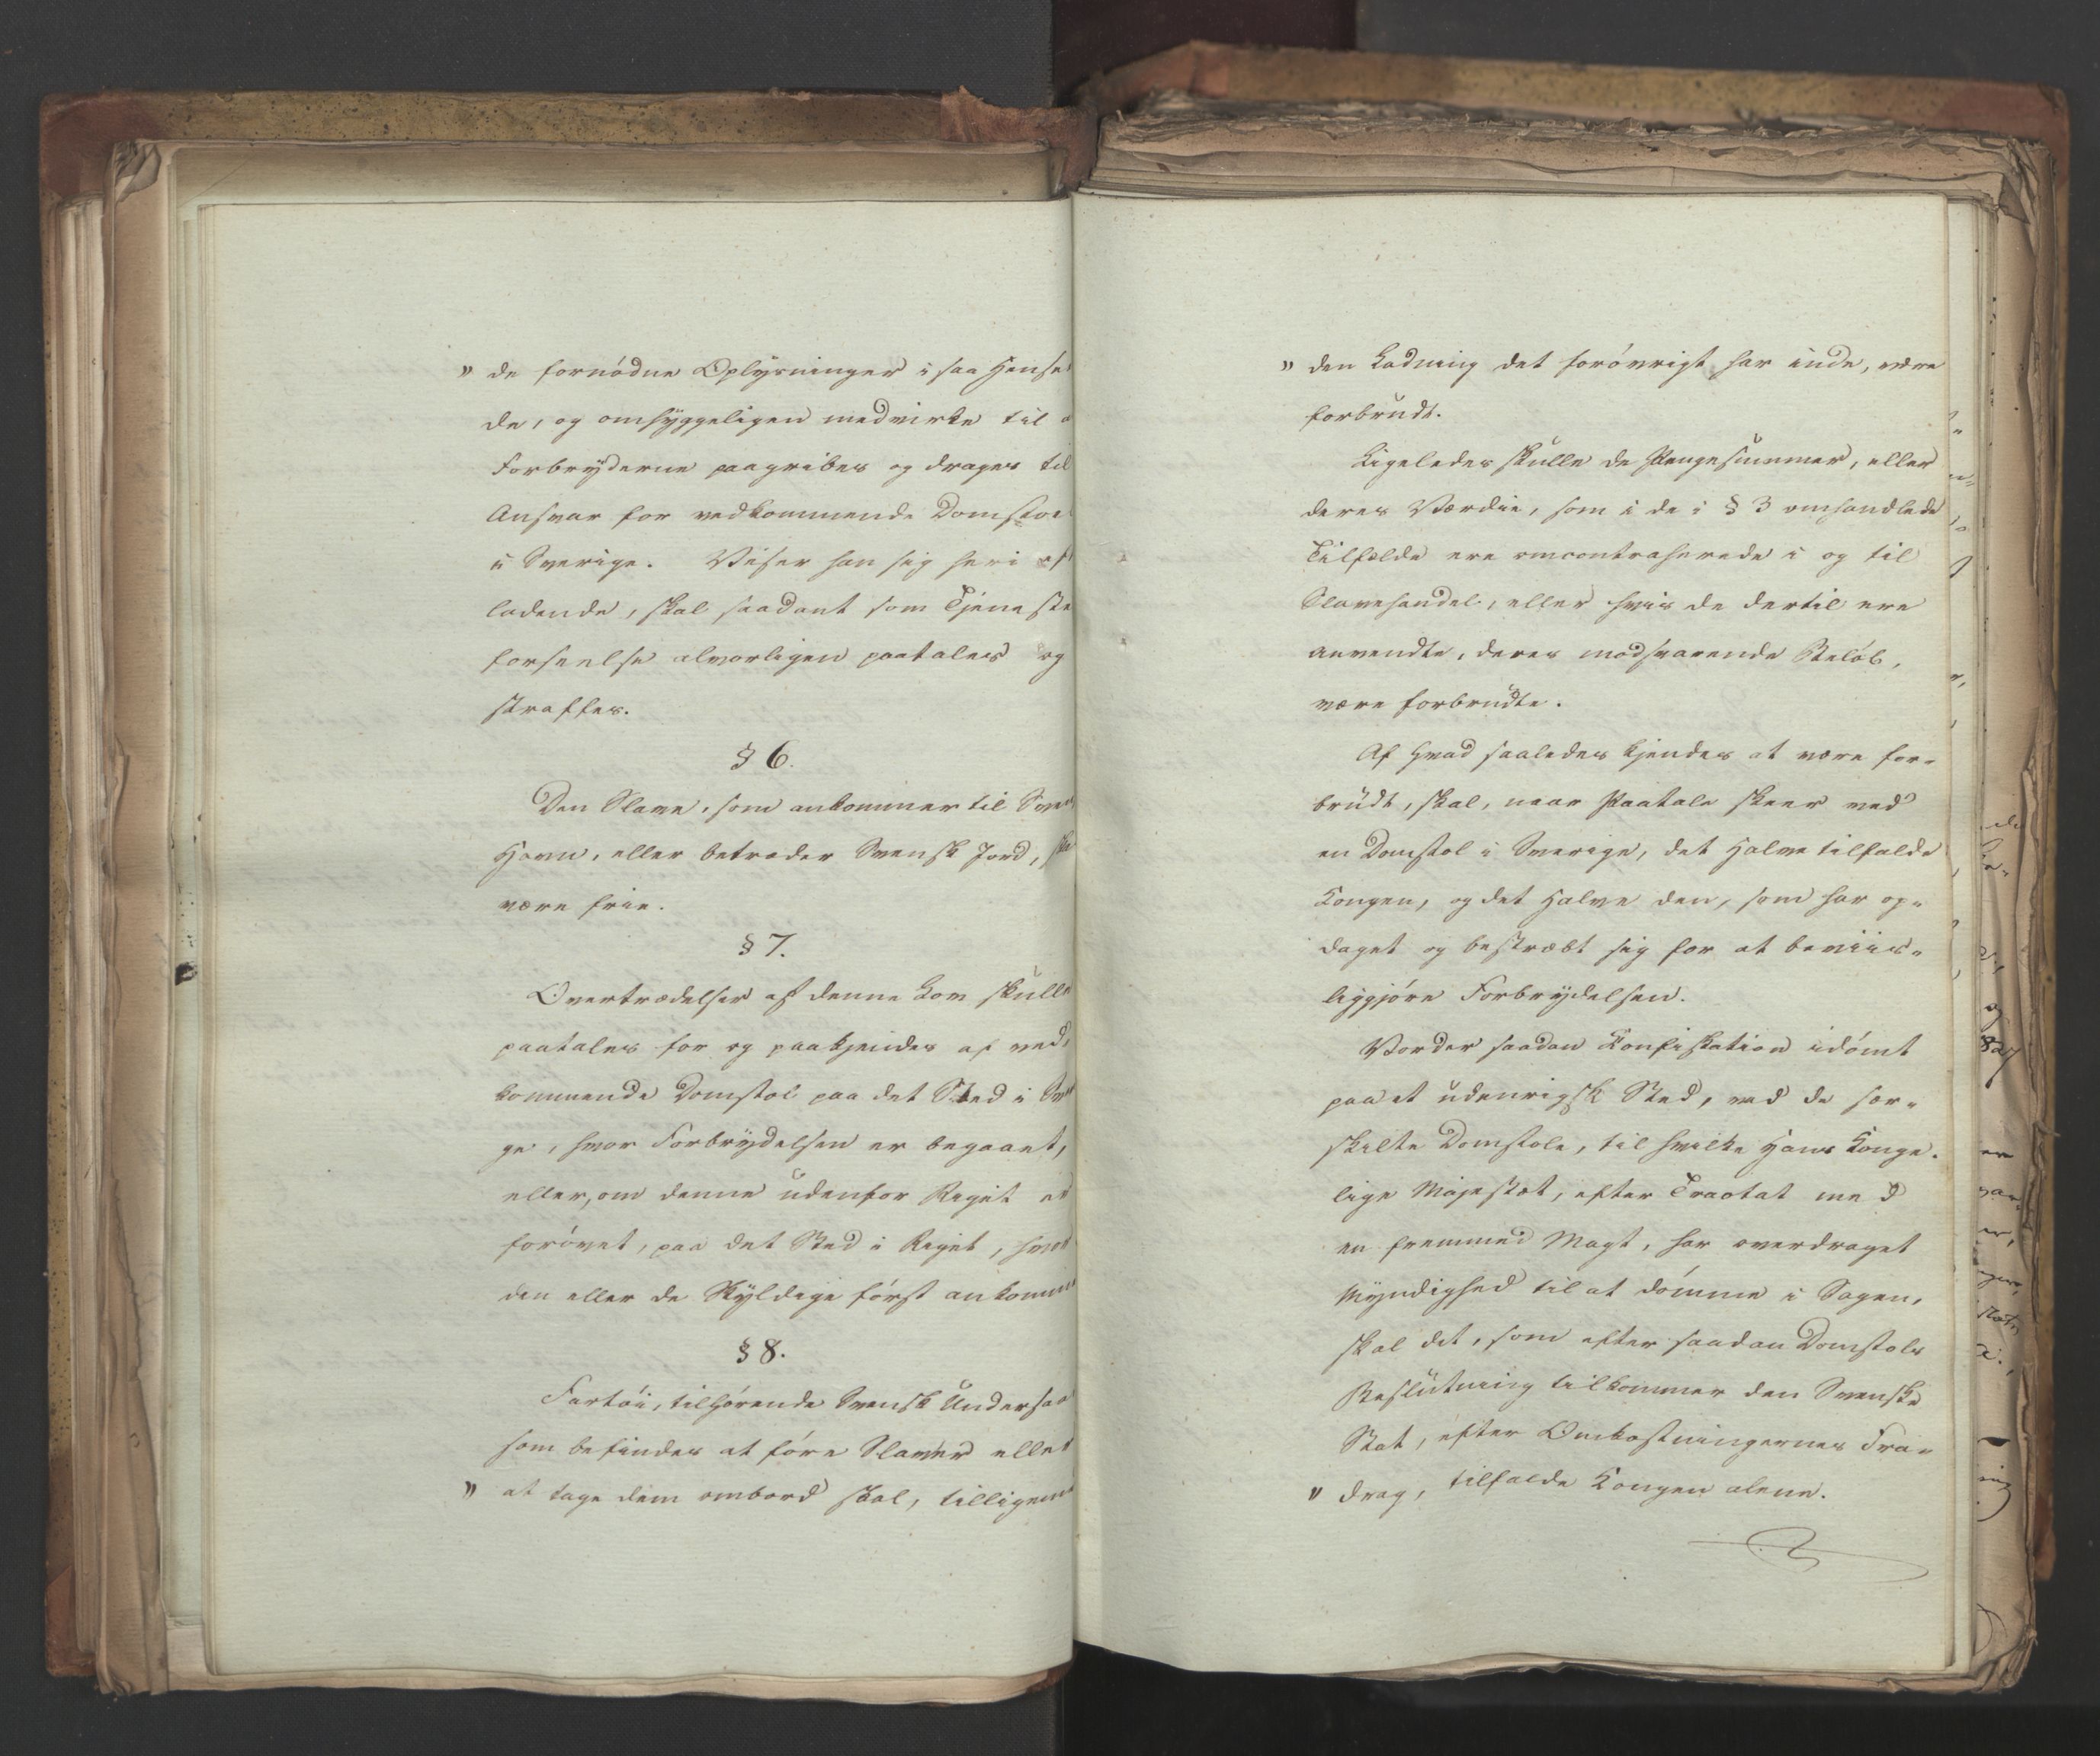 " de fornödne Oplysninger i saa Hense=
de, og omhyggeligen medvirke til a
Forbryderne paagribes og drages til
Ansvar for vedkommende Domstol
i Sverige. Viser han sig heri eft
ladende, skal saadant som Tjeneste
forseelse alvorligen paatales og
straffes.
§ 6.
Den Slave, som ankommer til Svensk
Havn, eller betræder Svensk Jord, skal
være frie.
§ 7.
Overtrædelser af denne Lov skulle
paatales for og paakjendes af ved=
kommende Domstol paa det Sted i Sve
ge, hvor Forbrydelsen er begaaet,
eller, om denne udenfor Riget er
forövet, paa det Sted i Riget, hvor
den eller de Skyldige först ankomme
§ 8.
Fartöi, tilhörende Svensk Undersaa
som befindes at före Slaver eller
" at tage dem ombord skal, tilligemed
" den Ladning det foröVrigt har inde, være
forbrudt.
Ligeledes skulle de Pengesummer, eller
deres Værdie, som i de i § 3 omhandlede
Tilfælde ere omcontraherede i og til
Slavehandel, eller hvis de dertil ere
anvendte, deres modsvarende Belöb,
være forbrudte.
Af Hvad saaledes kjendes at være for=
brudt, skal, naar Paatale skeer ved
en Domstol i Sverige, det Halve tilfalde
Kongen, og det Halve den, som har op=
daget og bestræbt sig for at beviis=
liggjöre Forbrydelsen.
Vorder saadan Konfiskation idömt
paa et udenrigsk Sted, ved de sær=
skilte Domstole, til hvilke Hans Konge=
lige Majestæt, efter Tractat med
en fremmed Magt, har overdraget
Myndighed til at dömme i Sagen,
skal det, som efter saadan Domstols
Beslutning tilkommer den Svenske
Stat, efter Omkostningernes Fra=
" drag, tilfalde Kongen alene.